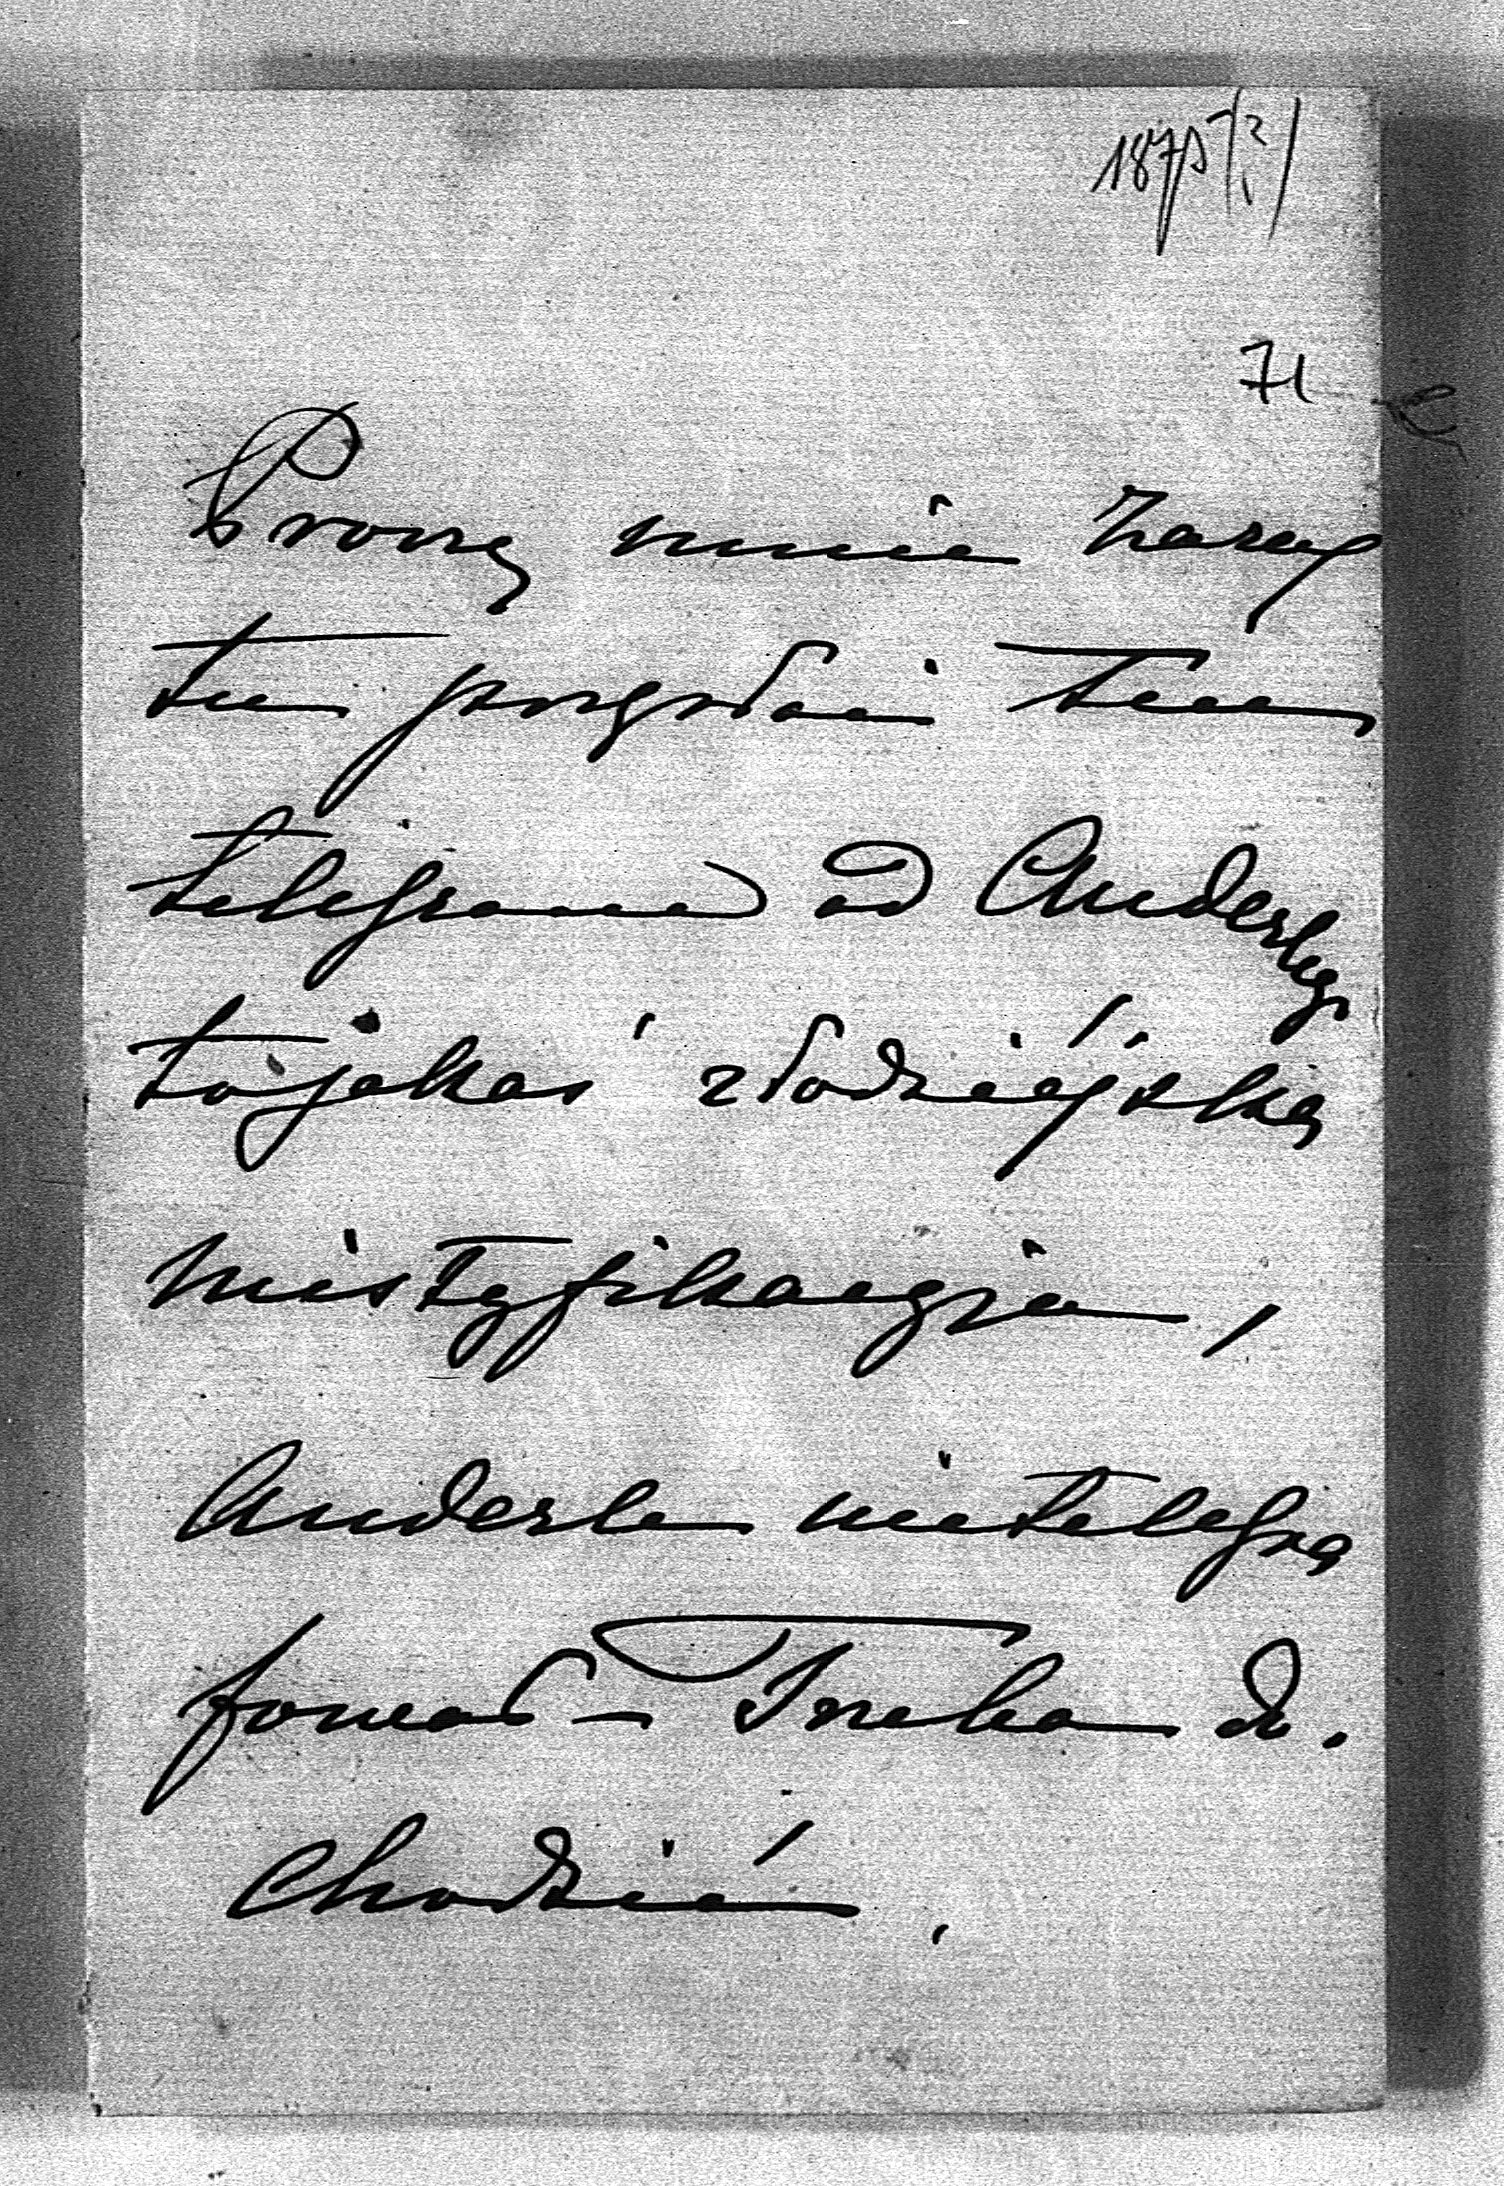 1875(?)
71
Proszę mnie zaraz
tu przysłać ten
telegram od Anderlego
to jakaś złodziejska
mistyfikacyja,
Anderle nie telegra
fował – Trzeba do.
chodzić.